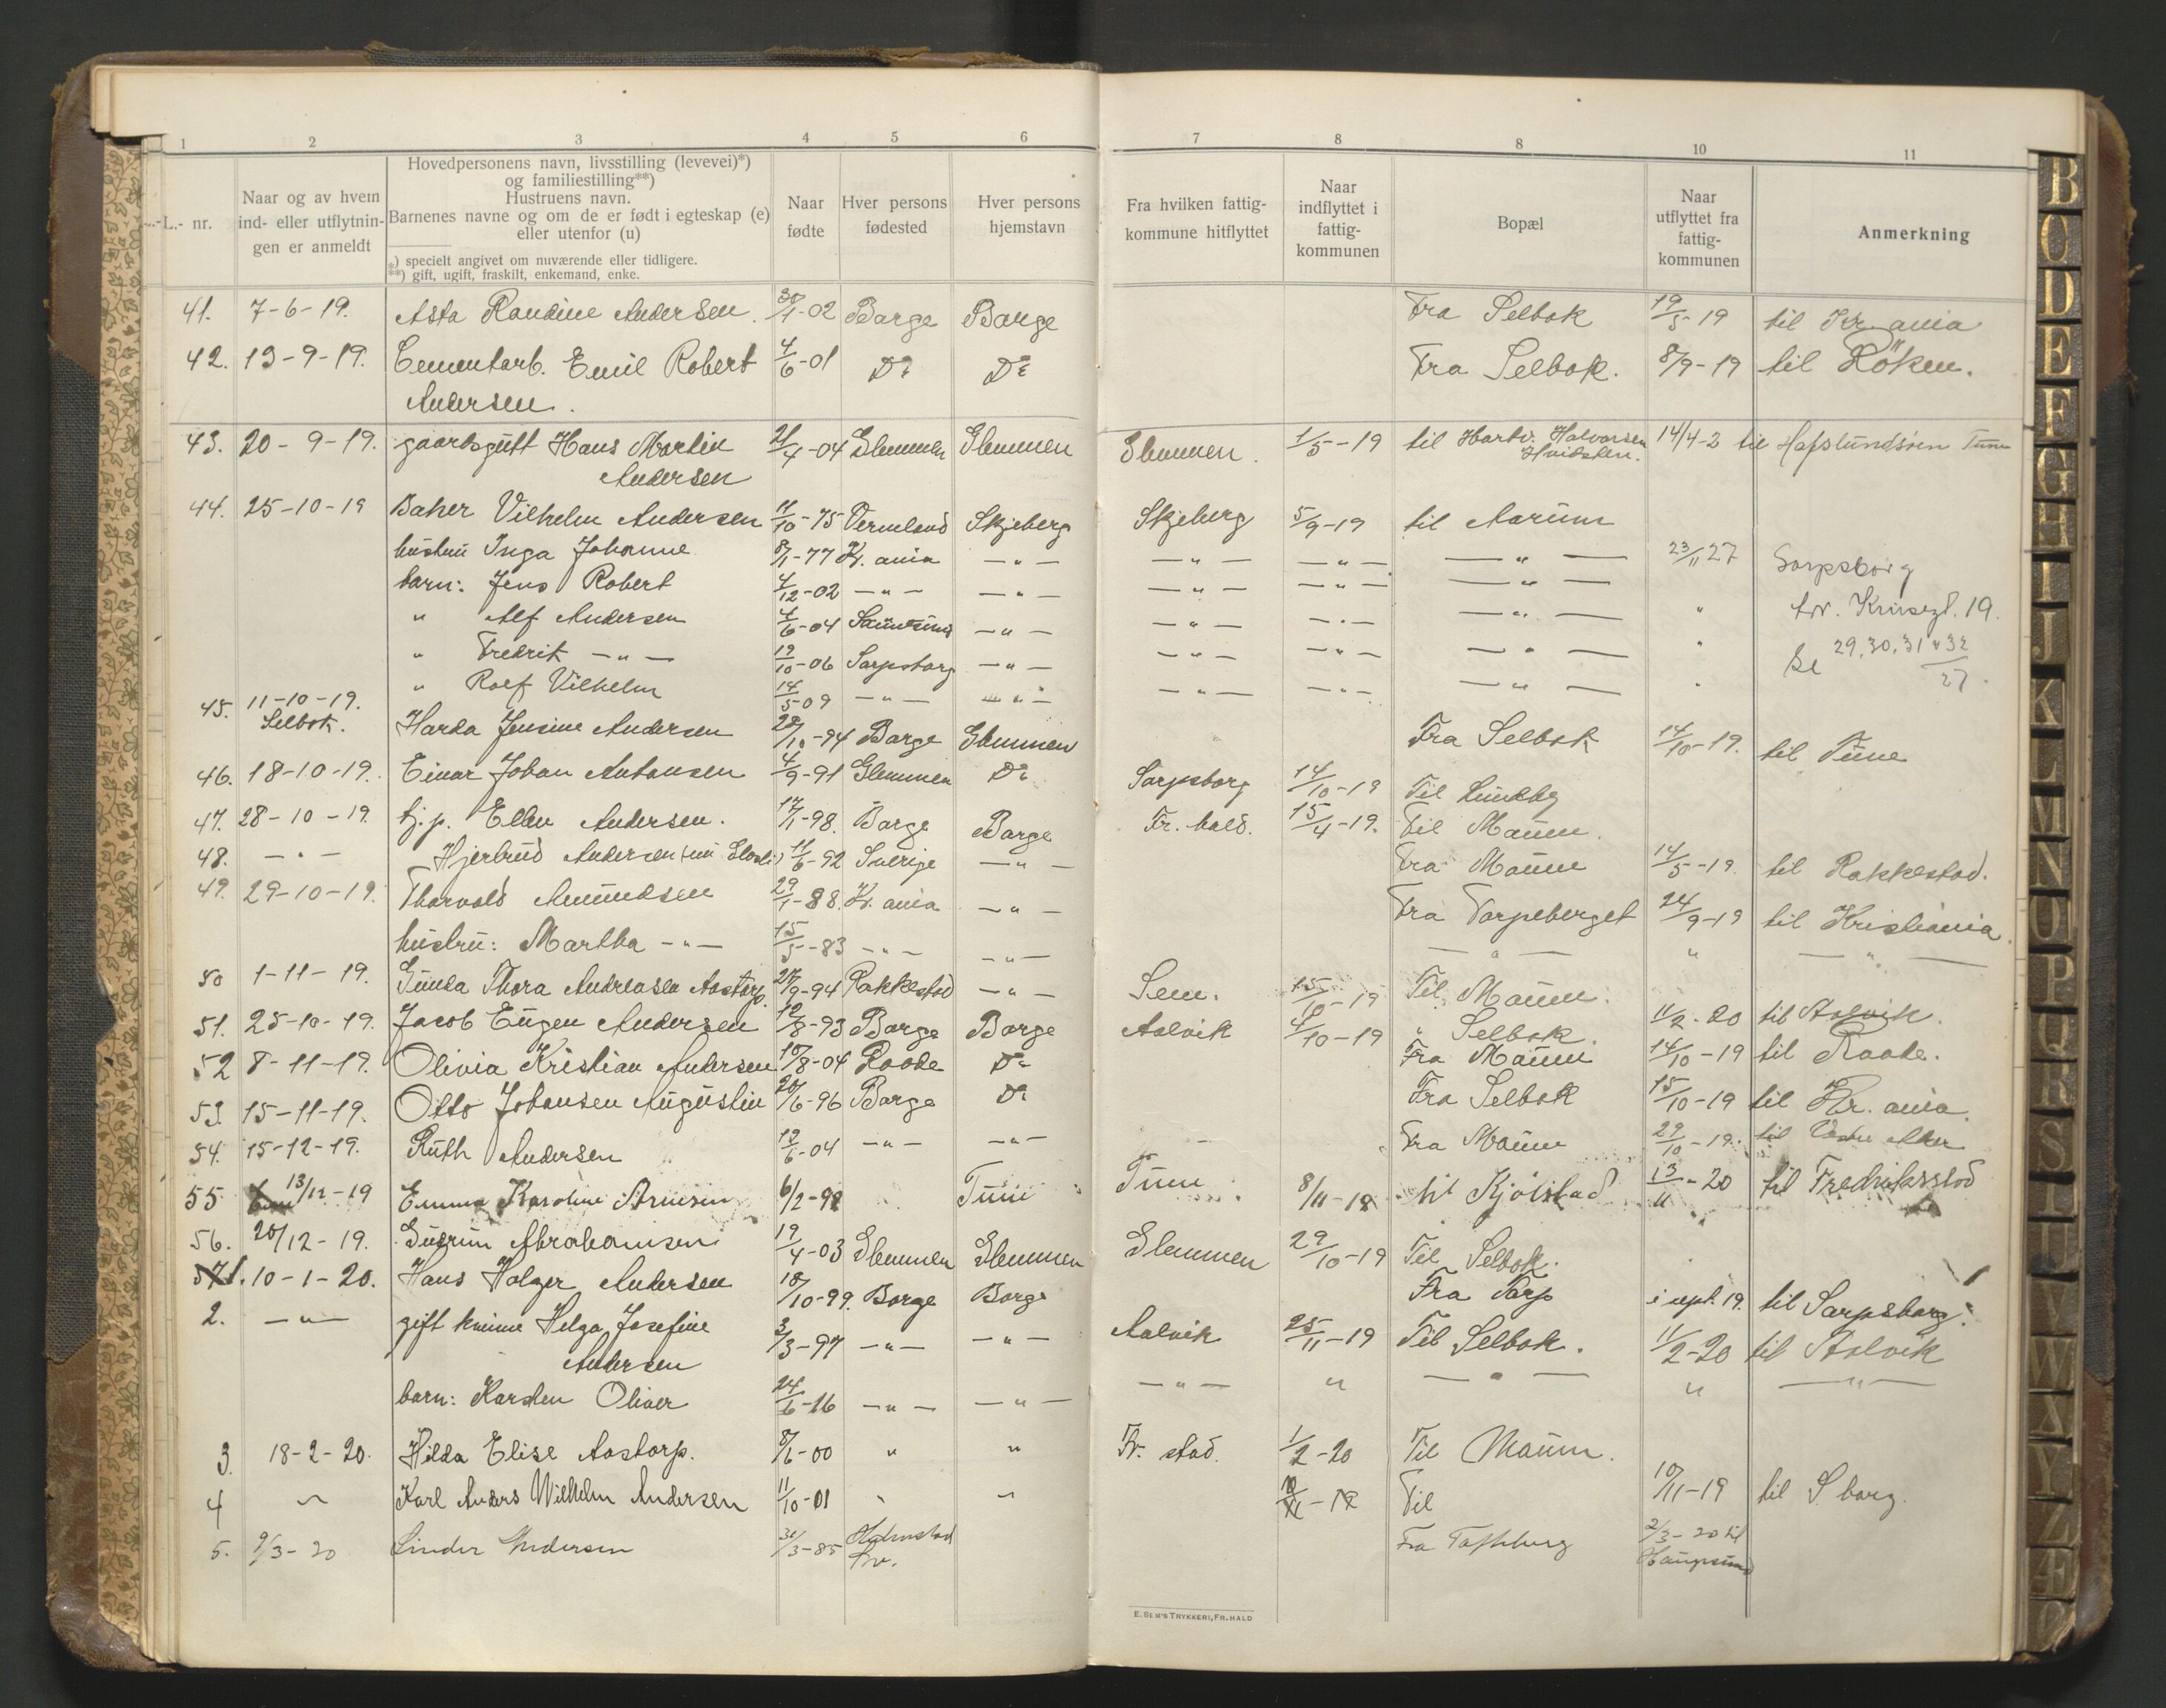 1 2 3 4 5 6 7 8 8 10 11
L.- nr.
Naar og av hvem
ind- eller utflytnin-
gen er anmeldt
Hovedpersonens navn, livsstilling (levevei)*)
og familiestilling**)
Hustruens navn.
Barnenes navne og om de er født i egteskap (e)
eller utenfor (u)
*) specielt angivet om nuværende eller tidligere.
**) gift, ugift, fraskilt, enkemand, enke.
Naar
fødte
Hver persons
fødested
Hver persons
hjemstavn
Fra hvilken fattig-
kommune hitflyttet
Naar
indflyttet i
fattig-
kommunen
Bopæl
Naar
utflyttet fra
fattig-
kommunen
Anmerkning
41. 7-6-19. Asta Randine Andersen. 30/1-02 Borge Borge Fra Selbak 19/5-19 til Kr.ania
42. 13-9-19. Cementarb. Emil Robert 4/6-01 Do Do Fra Selbak. 8/9-19 til Röken.
Andersen.
43. 20-9-19. gaardsgutt Hans Martin 21/4-04 Glemmen Glemmen Glemmen. 1/5-19 til Hartv. Halvorsen 14/4-2 til Hafslundsøen Tune
Andersen Hvidsten.
44. 25-10-19 Baker Vilhelm Andersen 11/10-75 Vermland Skjeberg Skjeberg 5/9-19 til Aarum
hustru Inga Johanne 8/1-77 Kr.ania -"- -"- -"- -"- 23/11 27 Sarpsborg
barn: Jens Robert 4/12-02 -"- -"- -"- -"- -"-
" Alf Andersen 4/6-04 Sannesund -"- -"- -"- -"- " 19.
" Fredrik -"- 19/10-06 Sarpsborg -"- -"- -"- -"- " Se 29, 30, 31 & 32
" Rolf Vilhelm 14/5-09 -"- -"- -"- -"- -"- " 27.
45. 11-10-19. Harda Jensine Andersen 28/10-94 Borge Glemmen Fra Selbak 14/10-19. til Tune
Selbak.
46. 18-10-19. Einar Johan Antonsen 4/9-91 Glemmen Do Sarpsborg 14/10-19 Til Lundby
47. 28-10-19. tj.p. Ellen Andersen. 17/1-98. Borge Borge Fr. hald. 15/4-19. Til Maum.
48. -"- Hjertrud Andersen 11/6-92 Sverige -"- Fra Maum 14/5-19. til Rakkestad.
49. 29-10-19. Thorvald Amundsen 29/1-88. Kr.ania -"- Fra Torpeberget 24/9-19 til Kristiania
hustru: Martha -"- 15/5-83 -"- -"- -"- " -"-
50 1-11-19. Gunda Thora Andreasen Aastorp. 28/9-94 Rakkestad -"- Sem. 15/10-19 Til Maum.
51. 25-10-19. Jacob Eugen Andersen 12/8-93 Borge Borge Aalvik 4/10-19 " Selbak. 11/2-20 til Aalvik.
52 8-11-19. Olivia Kristian Andersen 10/8-04 Raade Do Fra Maum 14/10-19 til Raade.
53. 15-11-19. Otto Johansen Augustin 20/6-96 Borge Do Fra Selbak 15/10-19 til Kr.ania.
54. 15-12-19. Ruth Andersen 12/6-04 -"- -"- Fra Maum 29/10-19. til Vestre Aker
55 13/12-19 Emma Karoline Arnesen 6/2-98 Tune Tune 8/11-18 til Kjølstad 13/11-20 til Fredriksstad
56. 20/12-19. Gudrun Abrahamsen 19/4-03 Glemmen Glemmen Glemmen 29/10-19 Til Selbak.
57 1. 10-1-20. Hans Holger Andersen 18/10-99. Borge Borge Fra Torp i sept. 19. til Sarpsborg.
2. -"- gift kvinne Helga Josefine 3/3-97 -"- -"- Aalvik 25/11-19 Til Selbak. 11/2-20 til Aalvik
Andersen
barn: Karsten Oliver 24/6-16 -"- -"- -"- " -"- " -"-
3. 18-2-20. Hilda Elise Aastorp. 8/6-00 " " Fr. stad. 1/2-20 Til Maum.
4 " Karl Anders Wilhelm Andersen 11/10-01 " " Til 10/11-19 til S borg.
5. 9/3-20 Linder Andersen 31/3-85 Fra 2/3-20 til
Haugesund
E. SEM'S TRYKKERI, FR.HALD
B C D E F G H I J K L M N O P Q R S T V W X Y Z Æ Ø